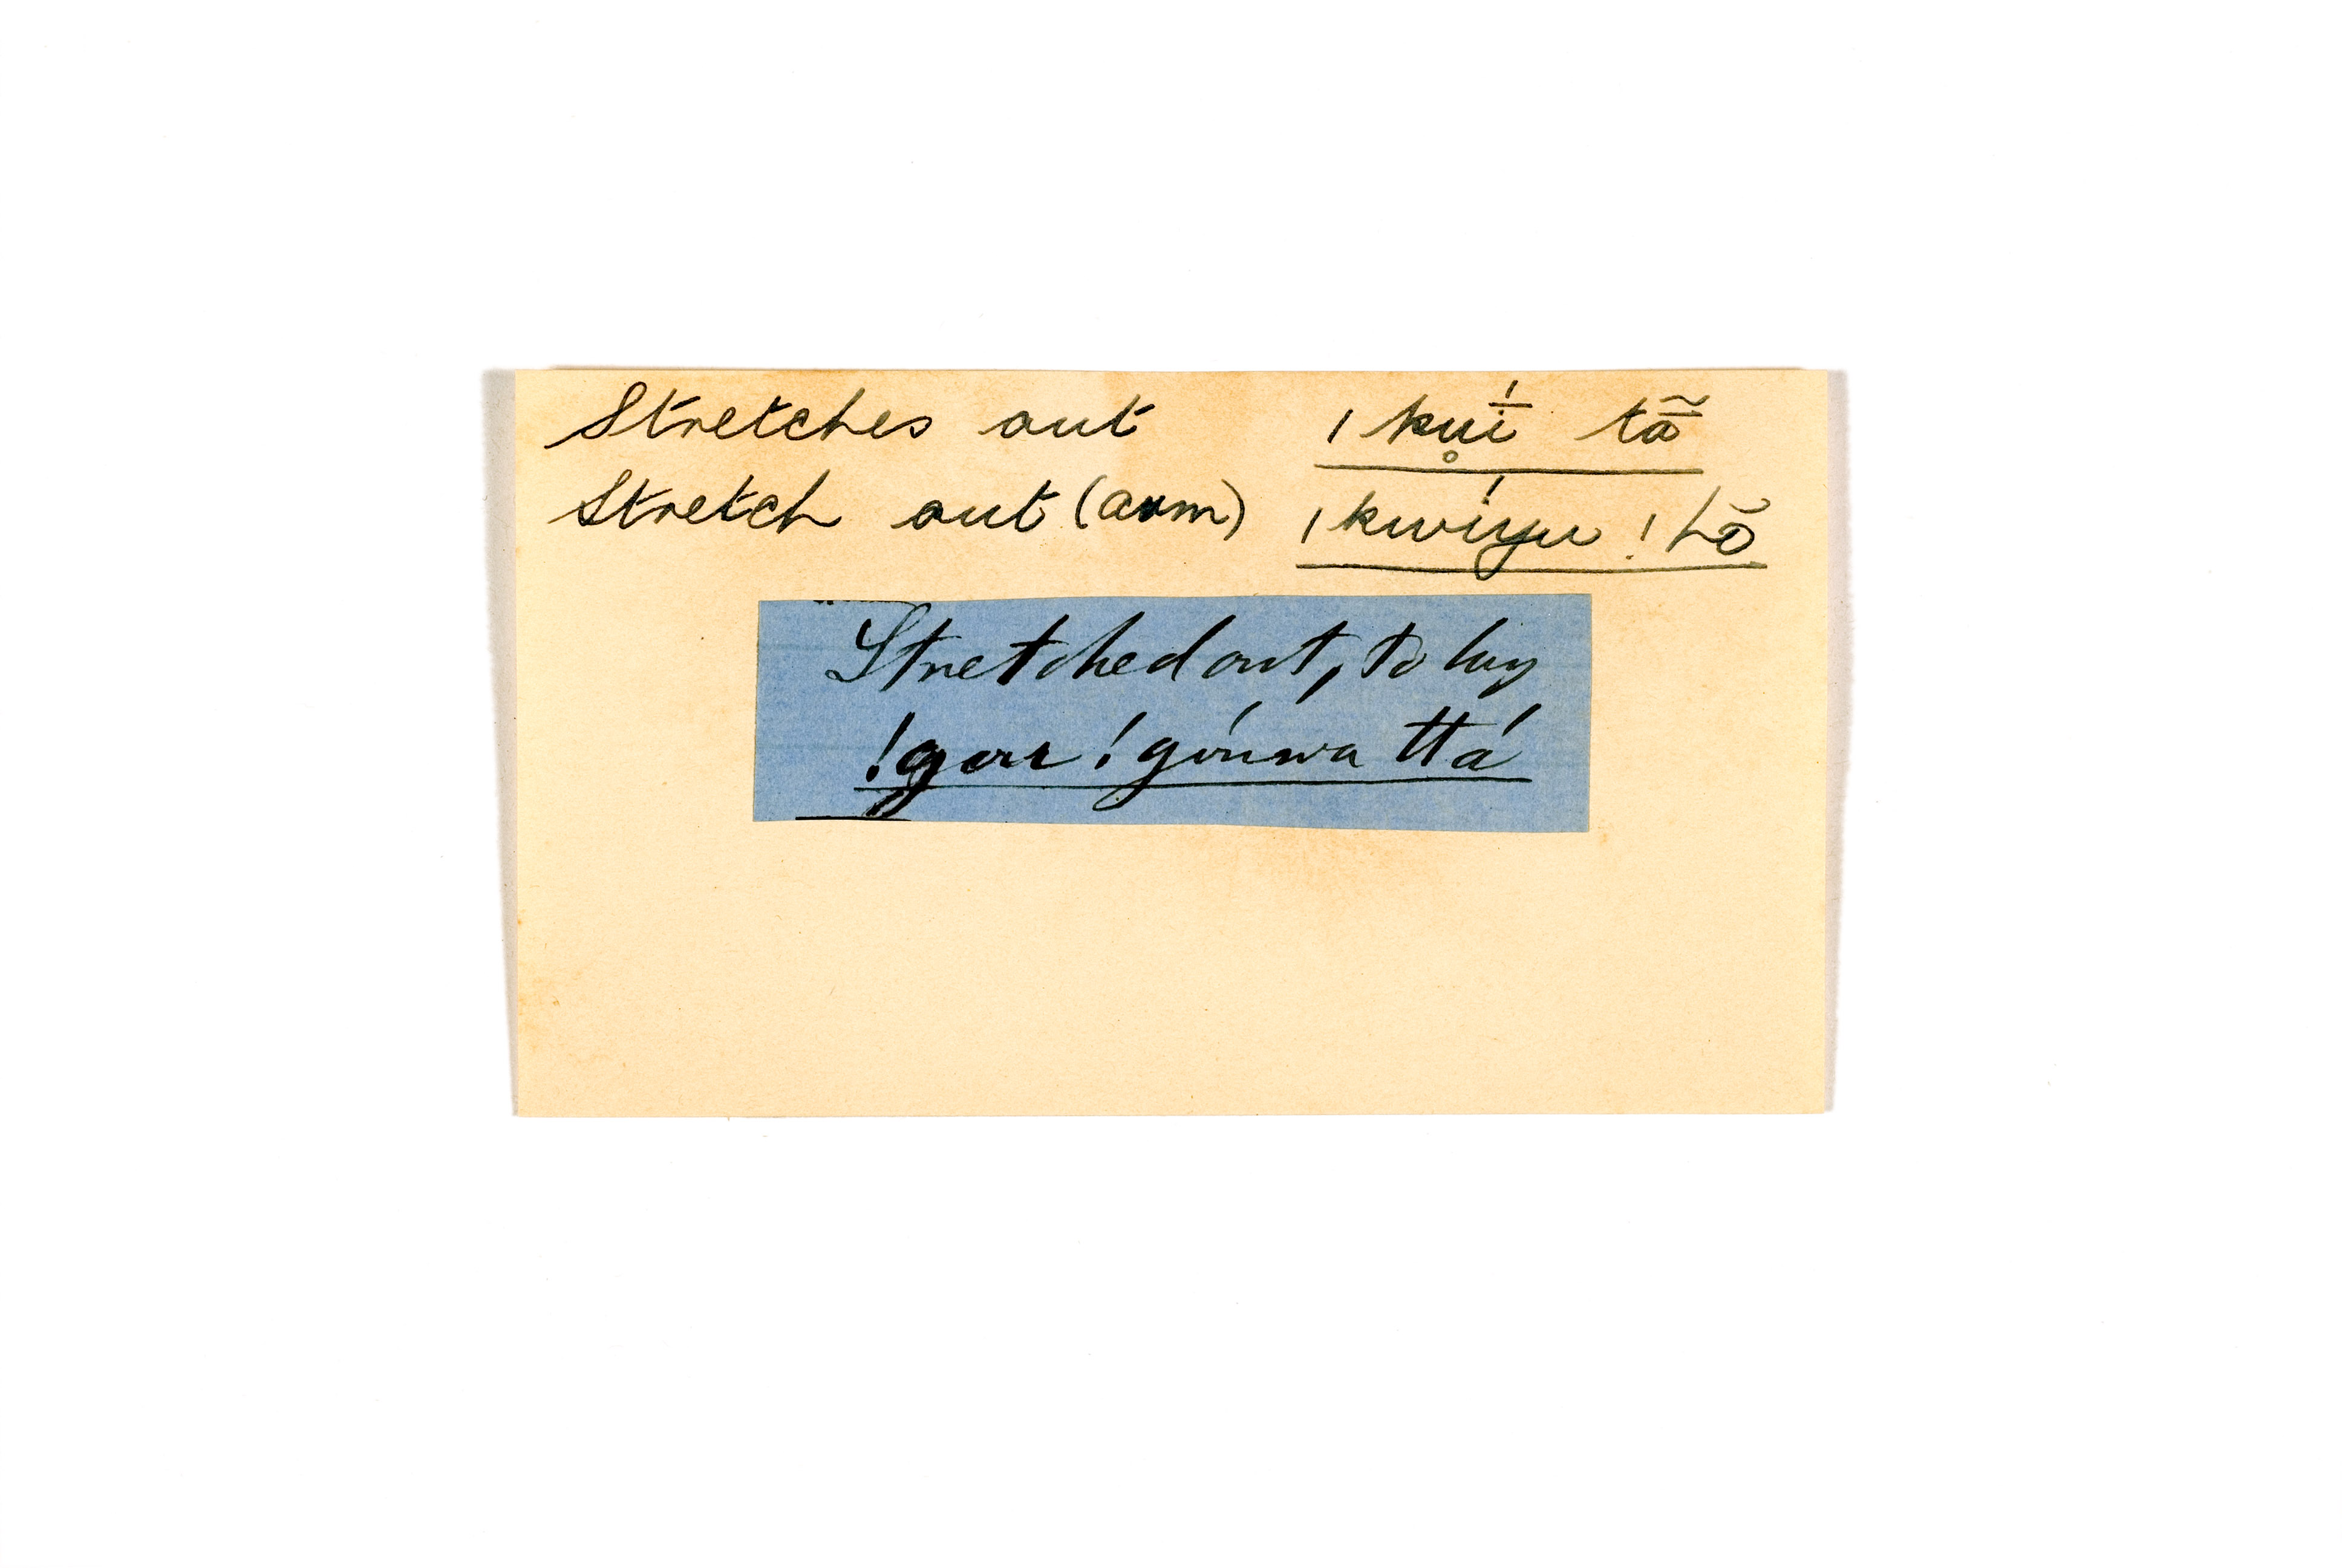 Stretches out ǀku̥ī́ tā̃
Stretch out (arm) ǀkwíyu !hõ
Stretched out, to lay
!gou !góuwa ttá